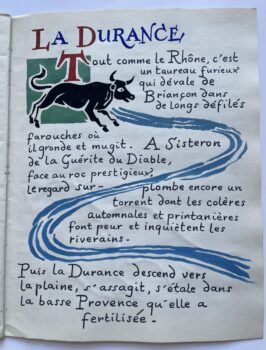 LA DURANCE
Tout comme le Rhône, c'est
un taureau furieux
qui dévale de
Briançon dans
de longs défilés
farouches où
il gronde et mugit. A Sisteron
de la Guérite du Diable,
face au roc prestigieux,
le regard sur-plombe encore un
torrent dont les colères
automnales et printanières
font peur et inquiètent les
riverains.
Puis la Durance descend vers
la plaine, s'assagit, s'étale dans
la basse Provence qu'elle a
fertilisée.